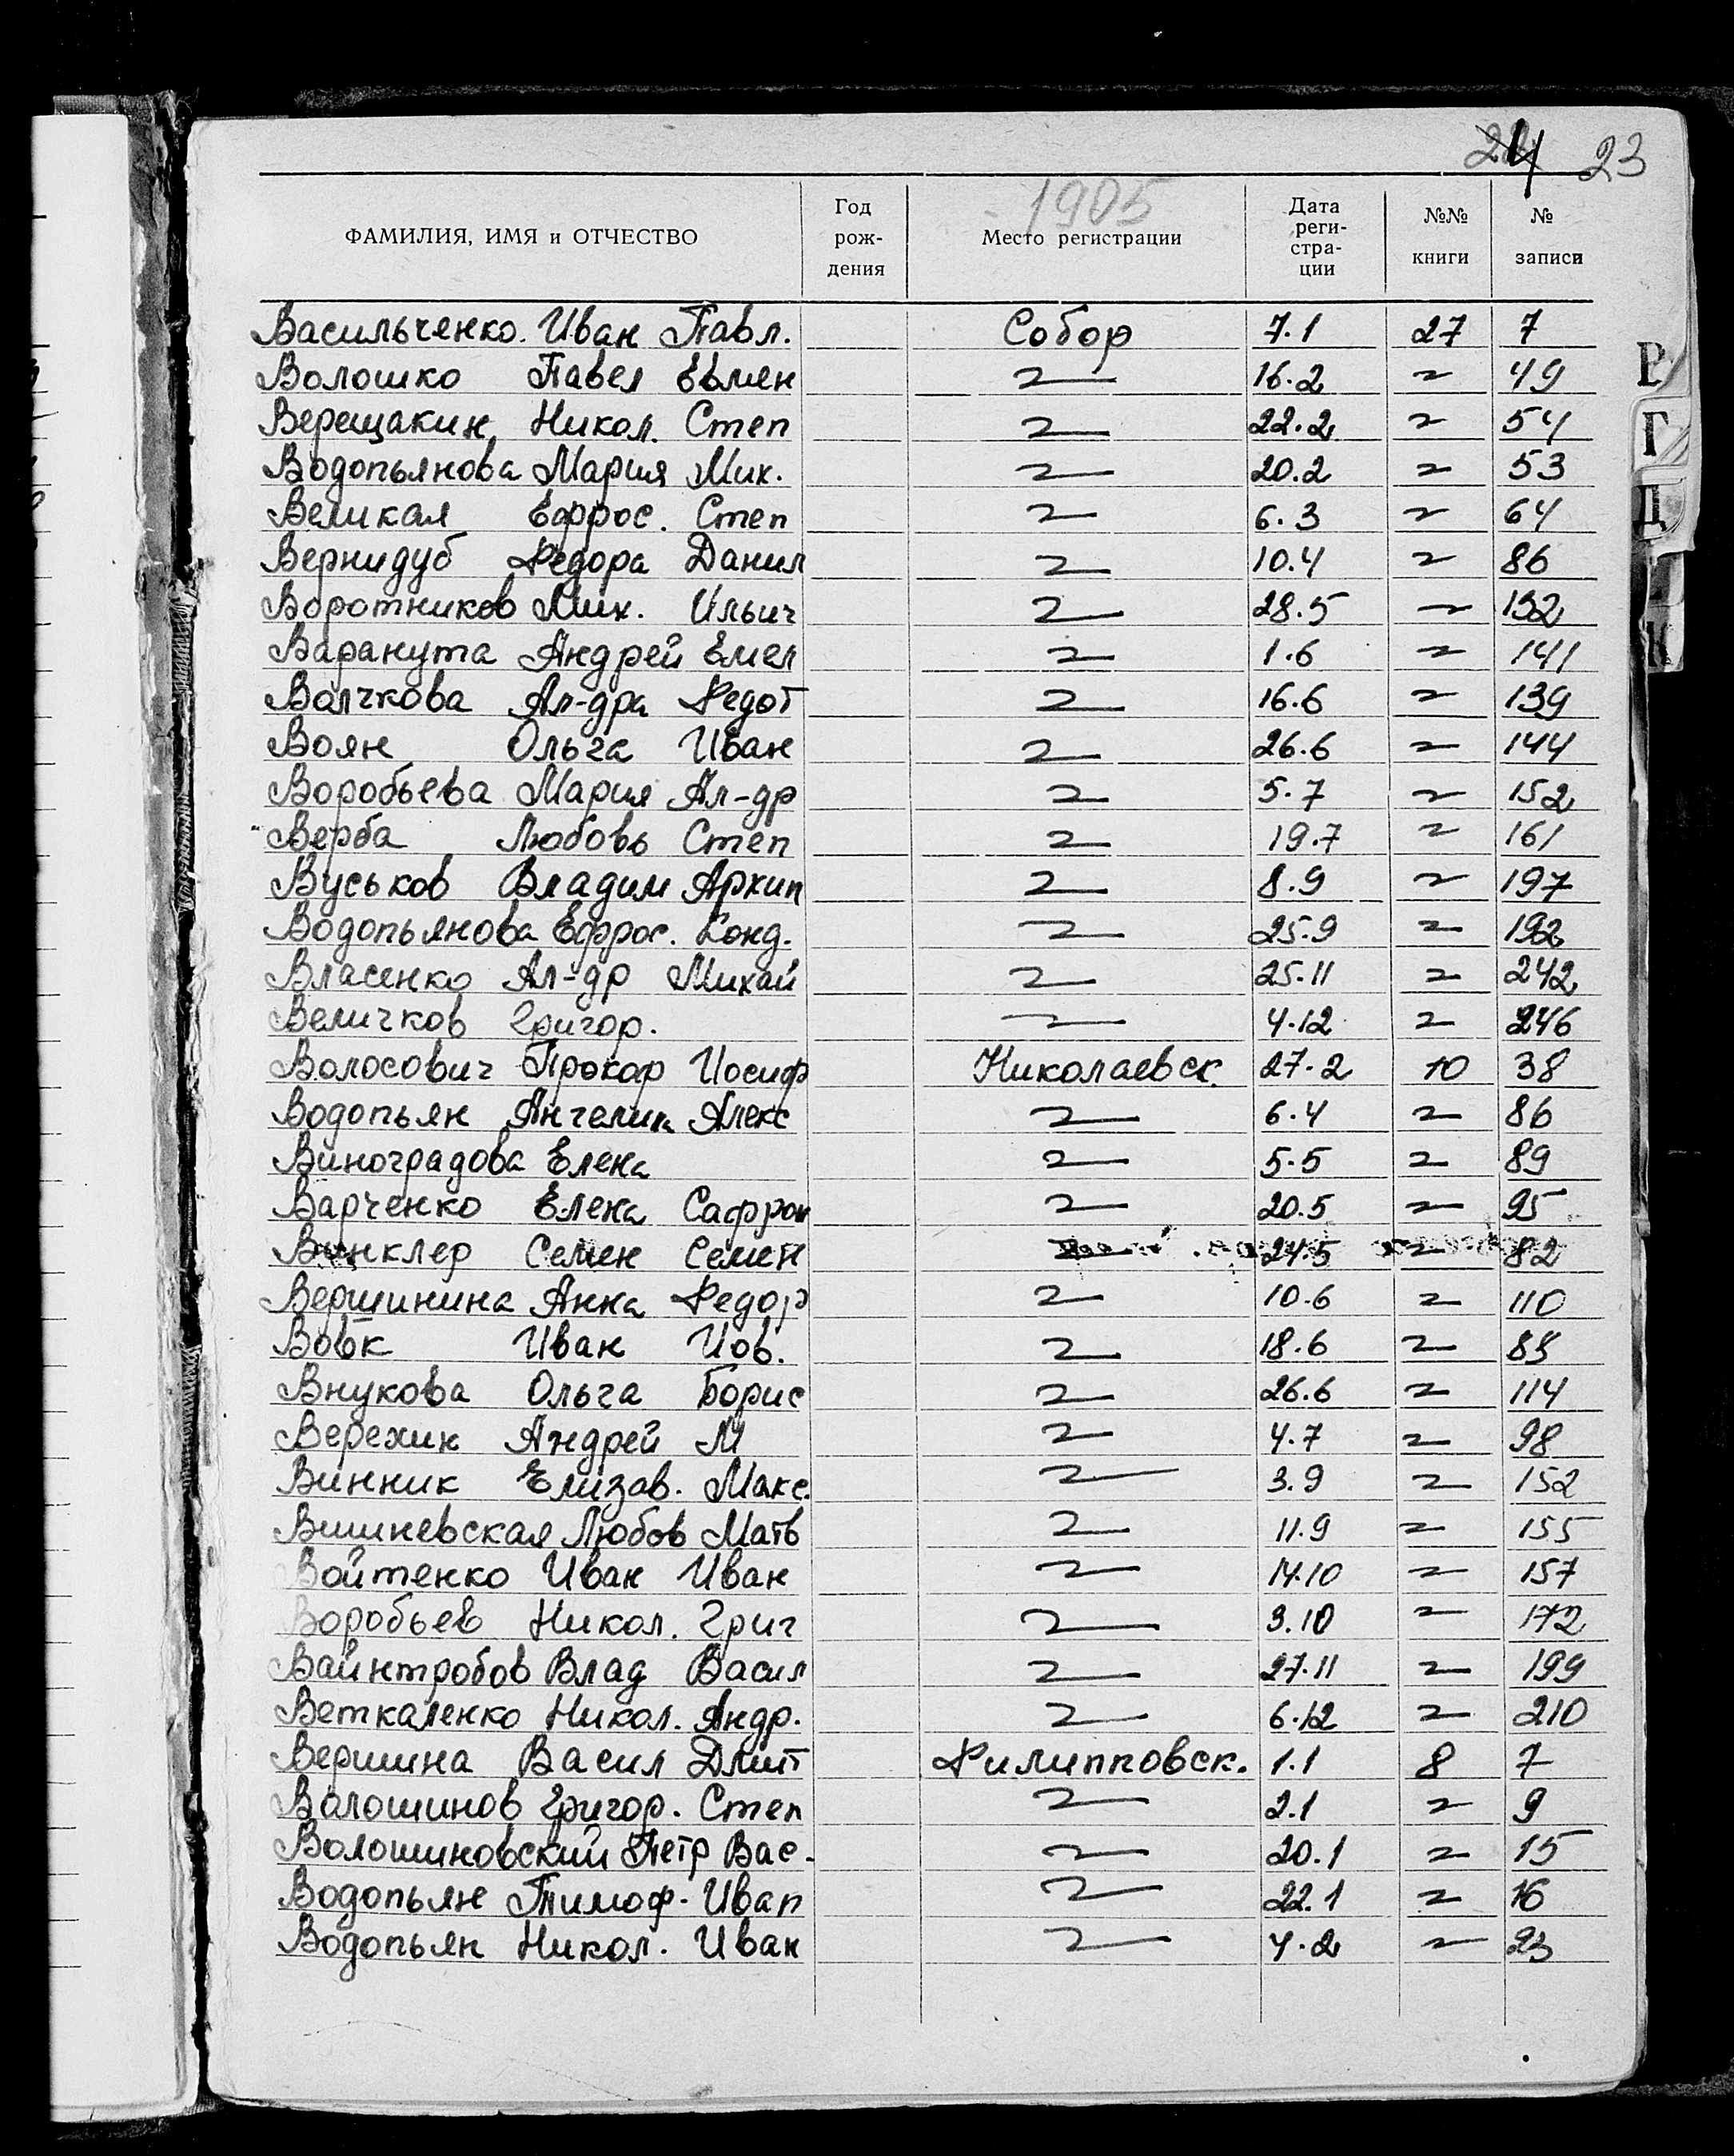 23
1905
ФАМИЛИЯ, ИМЯ и ОТЧЕСТВО Год рождения Место регистрации Дата реги-стра-ции №№ книги № записи
Васильченко. Иван Павл. Собор 7.1 27 7
Волошко Павел Евмен 〃 16.2 〃 49
Верещакин Никол. Степ 〃 22.2 〃 54
Водопьянова Мария Мих. 〃 20.2 〃 53
Великая Ефрос. Степ 〃 6.3 〃 64
Вернидуб Федора Данил 〃 10.4 〃 86
Воротников Мих. Ильич 〃 28.5 〃 132
Варанута Андрей Емел 〃 1.6 〃 141
Волчкова Ал-дра Федот 〃 16.6 〃 139
Воян Ольга Иван 〃 26.6 〃 144
Воробьева Мария Ал-др 〃 5.7 〃 152
Верба Любовь Степ 〃 19.7 〃 161
Вуськов Владим Архип 〃 8.9 〃 197
Водопьянова Ефрос. Конд. 〃 25.9 〃 192
Власенко Ал-др Михай 〃 25.11 〃 242
Величков Григор. 〃 4.12 〃 246
Волосович Прокоф Иосиф Николаевск. 27.2 10 38
Водопьян Ангелин Алекс 〃 6.4 〃 86
Виноградова Елена 〃 5.5 〃 89
Варченко Елена Сафрон 〃 20.5 〃 95
Винклер Семен Семен 〃 24.5 〃 82
Вершинина Анна Федор 〃 10.6 〃 110
Вовк Иван Иов. 〃 18.6 〃 85
Внукова Ольга Борис 〃 26.6 〃 114
Верехин Андрей М 〃 4.7 〃 98
Винник Елизав. Макс. 〃 3.9 〃 152
Вишневская Любов Матв 〃 11.9 〃 155
Войтенко Иван Иван 〃 14.10 〃 157
Воробьев Никол. Григ 〃 3.10 〃 172
Вайнтробов Влад Васил 〃 27.11 〃 199
Веткаленко Никол. Андр. 〃 6.12 〃 210
Вершина Васил Дмит Филипповск. 1.1 8 7
Валошинов Григор. Степ 〃 2.1 〃 9
Волошиновский Петр Вас. 〃 20.1 〃 15
Водопьян Тимоф. Иван 〃 22.1 〃 16
Водопьян Никол. Иван 〃 4.2 〃 23
В
Г
Д
К